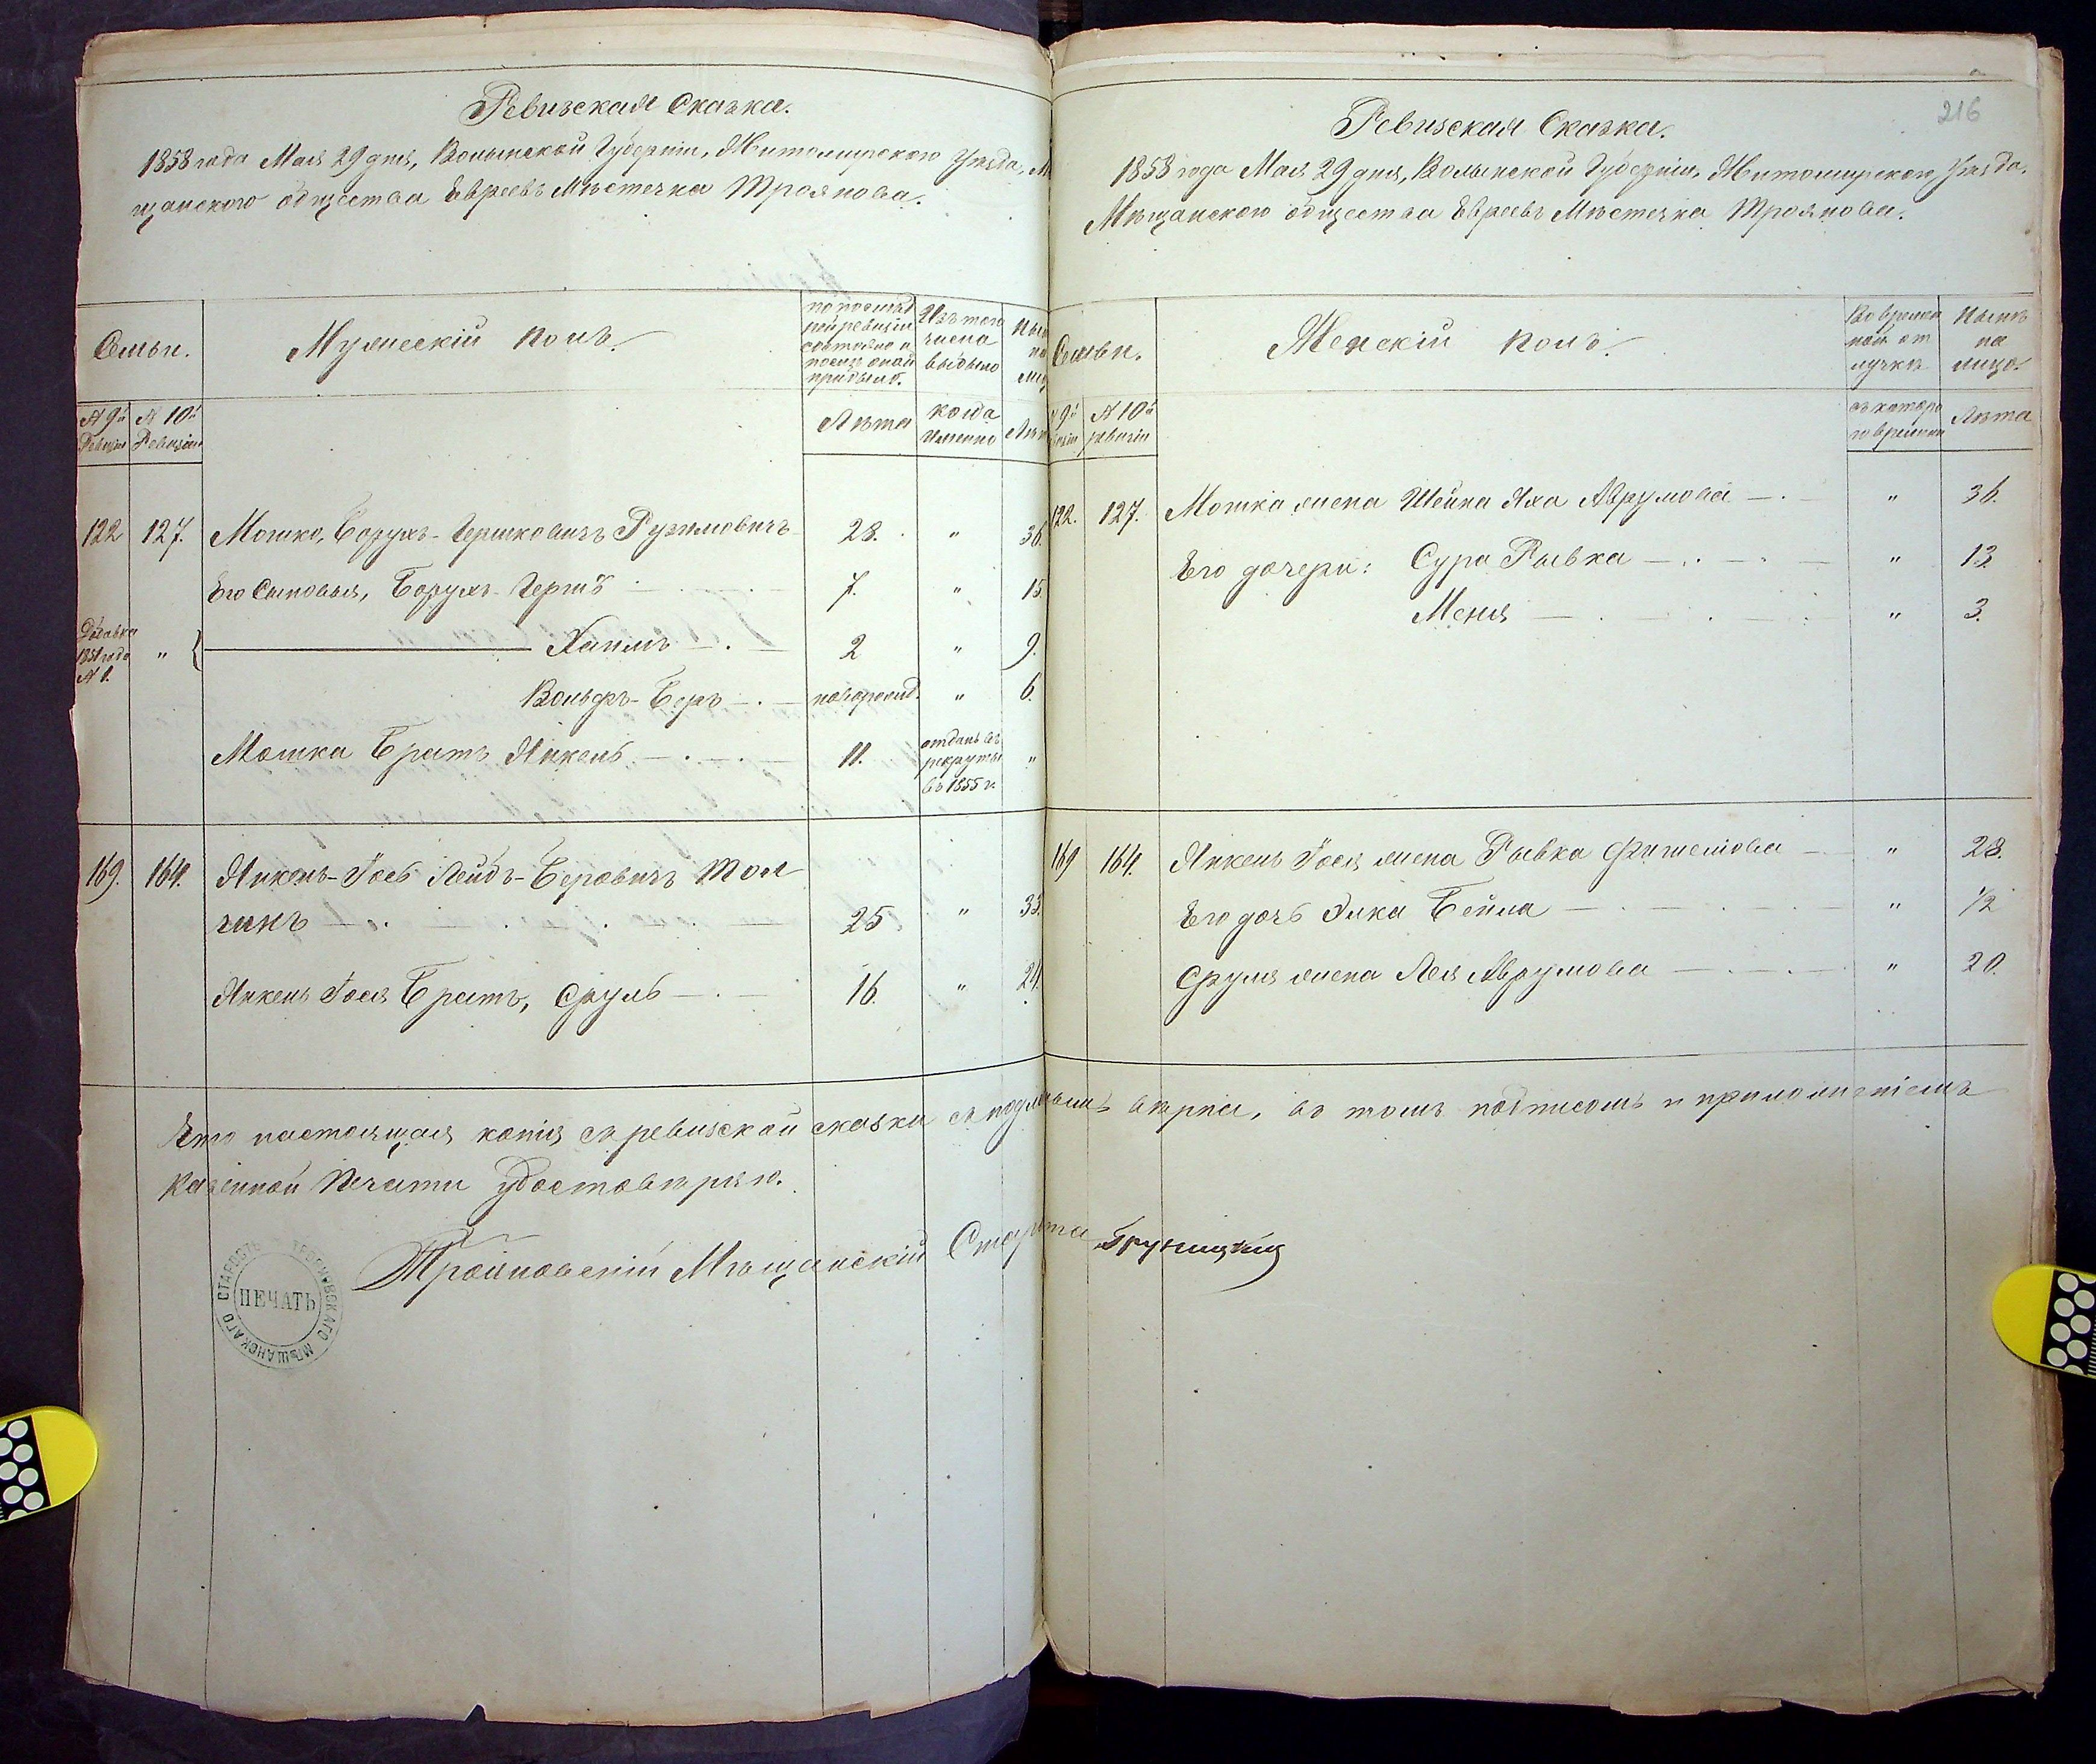 Ревизская Сказка.
1858 года Мая 29 дня, Волынской Губерніи, Житомирского Уезда, М
щанского общества Евреевъ Мѣстечка Троянова.
Семьи.
Мужеский полъ.
по послѣд
ней ревизіи
состояло и
послѣ оной
прибыло.
Изъ того
числа
выбыло
Ныне
на
лиц
№ 9й
Ревизіи
№ 10й
Ревизіи
Лѣта
когда
именно
Лѣт
122
127.
Мошко, Борухъ-Гершковичъ
28.
"
36.
Его Сыновья, Борухъ Гершъ
7.
"
15
Добавка
1851 года
№ 1.
"
Хаимъ
2
"
9.
Вольфъ-Беръ
новорожд.
"
6.
Мошка Братъ Янкель
11.
отданъ въ
рекруты
въ 1855 г.
"
169.
164.
Янкель-Іось Лейбъ-Беровичъ Тол
чинъ
25
"
33.
Янкель Іося Братъ, Сруль
16.
"
24.
216
Ревизская Сказка.
1858 года Мая 29 дня, Волынской Губерніи, Житомирского Уезда,
Мѣщанского общества Евреевъ Мѣстечка Троянова.
Семьи.
Женскій полъ.
Во времен
ной от
лучкѣ
Нынѣ
на
лицо.
№ 9й
визіи
№ 10й
ревизіи
съ которо
го времени
Лѣта
122.
127.
Мошка жена Шейна Яха Аврумова
"
36.
Его дочери: Сура Рывка
"
13
Меня
"
3.
169
164.
Янкель Іося жена Рывка
"
28.
Его дочь Элка Бейла
"
1/2
Сруля жена Лея Аврумова
"
20.
Что настоящая копія съ ревизской сказки съ подлиннымъ вѣрна, въ томъ подписомъ и приложеніемъ
казенной печати удостовѣряю.
Трояновскій Мѣщанскій Староста
ТРОЯНОВСКАГО МѢЩАНСКАГО СТАРОСТЫ
ПЕЧАТЬ